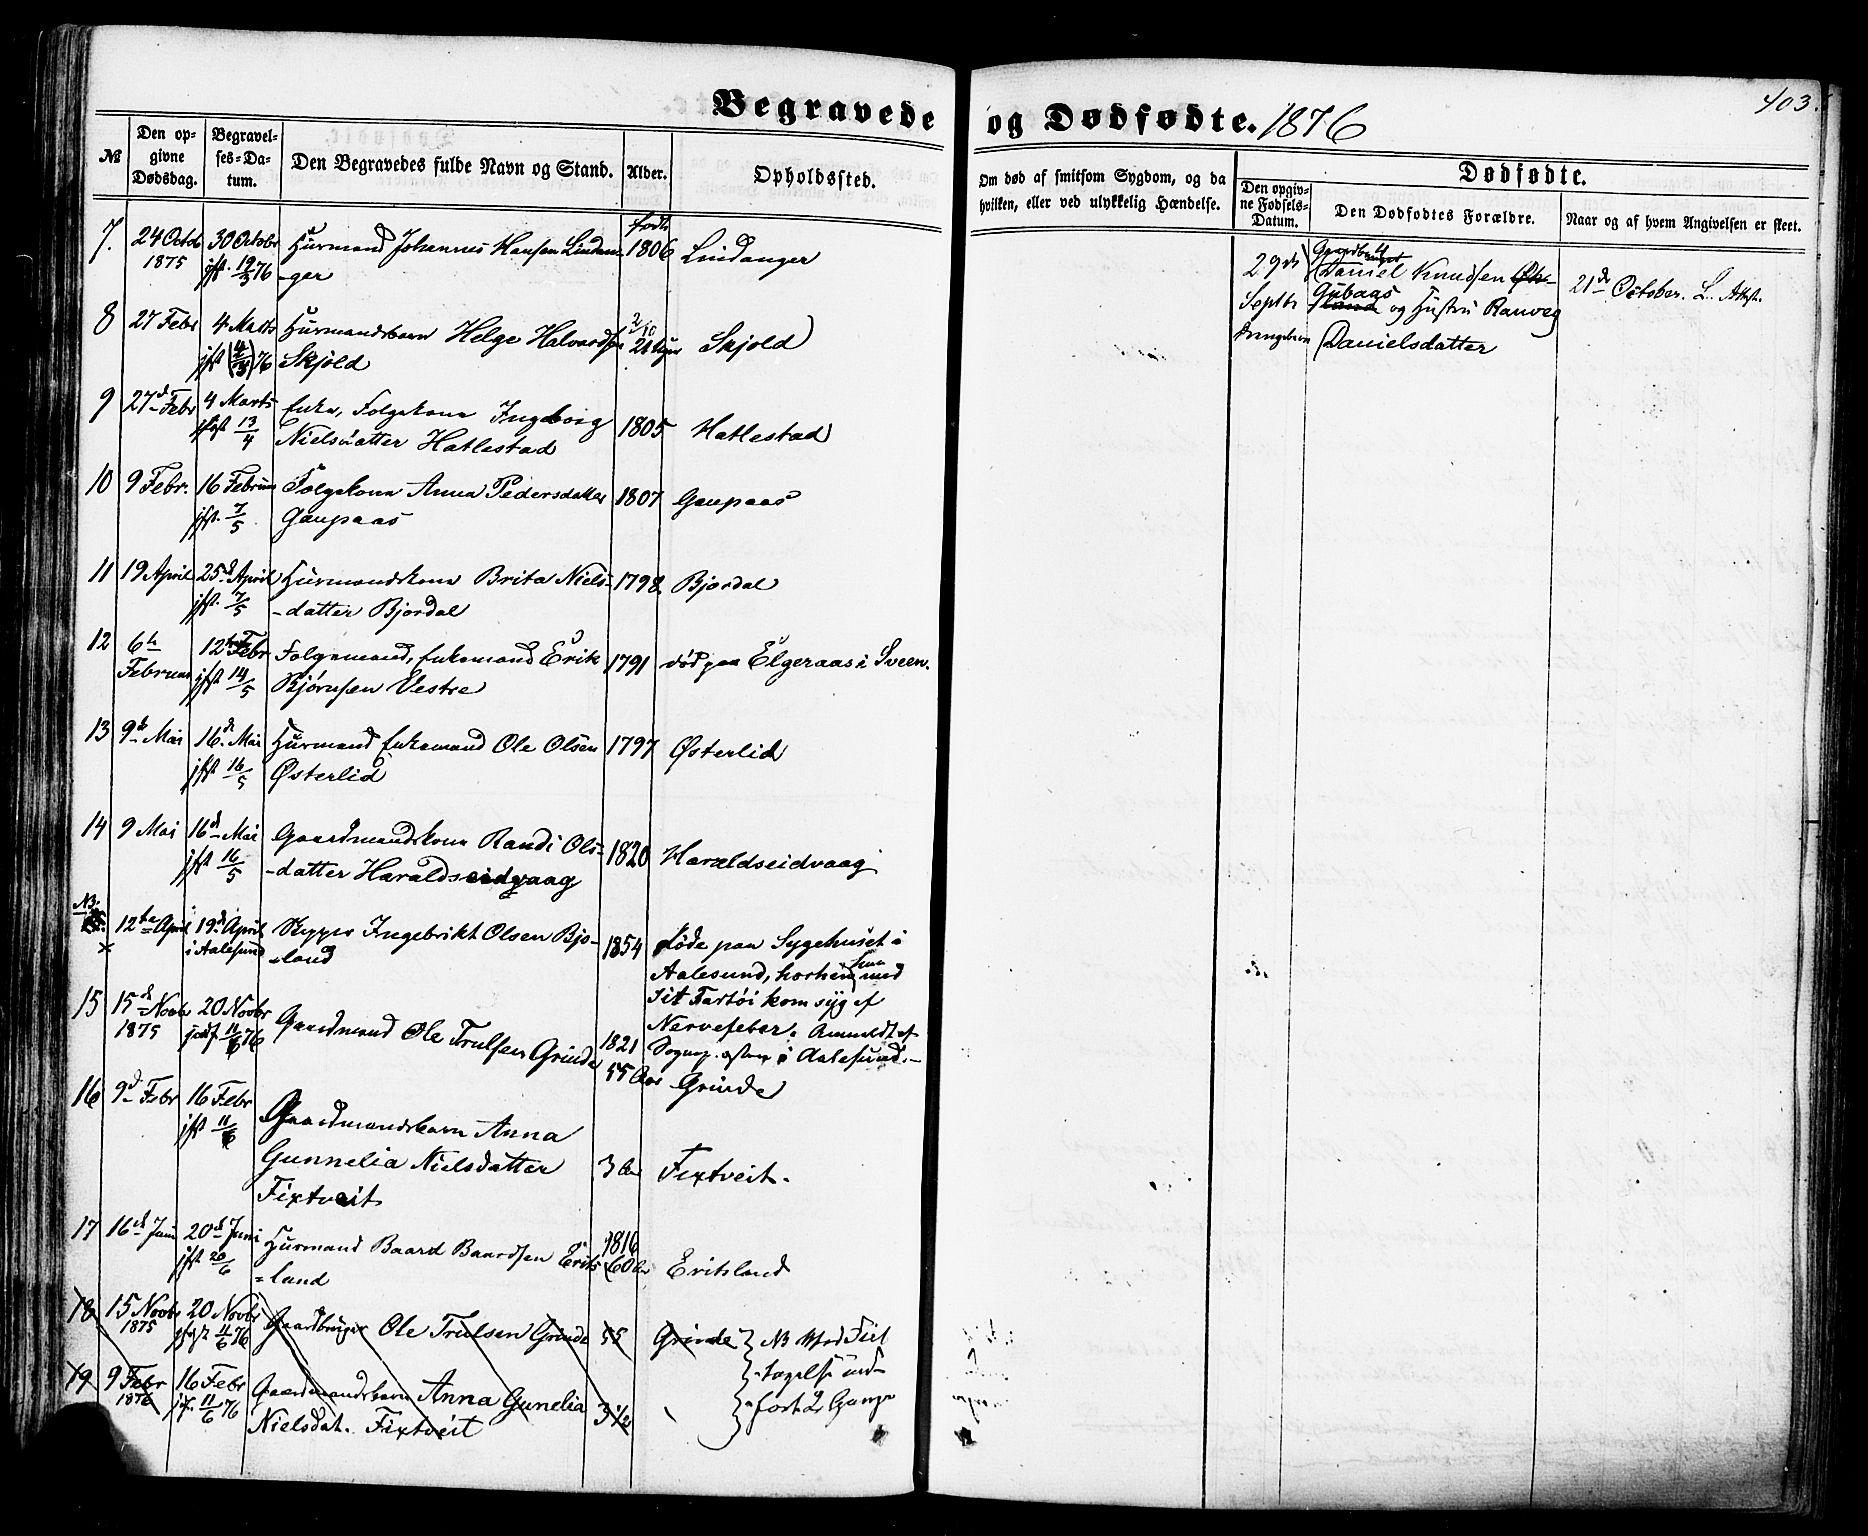 Begravede og Dødfødte. 1876
403.
№
Den opgivne Dødsdag.
Begravelses-Datum.
Den Begravedes fulde Navn og Stand.
Alder.
Opholdssted.
Om død af smitsom Sygdom, og da
hvilken, eller ved ulykkelig Hændelse.
Dødfødte.
Den opgivne Fødsels-Datum.
Den Dødfødtes Forældre.
Naar og af hvem Angivelsen er skeet.
7. 24 Octb 30 Octobr Huusmand Johannes Hansen Lindan- født 1806 Lindanger
1875 jfst. 19/3 76 -ger
8 27 Febr 4 Marts Huusmandsbarn Helge Halvordsen Skjold
jfst (4/3) 76 Skjold
9 27d Febr 4 Marts Enke, Folgekone Ingeborg 1805 Hatlestad
jfst 13/4 Nielsdatter Hatlestad
10 9 Febr. 16 Februar Folgekone Anna Pedersdatter 1807 Gaupaas
jfst. 7/5 Gaupaas
11 19 April 25d April Huusmandskone Brita Niels- 1798 Bjordal
jfst. 7/5 -datter Bjordal
12 6te 12te Febr Folgemand, Enkemand Erik 1791 død paa Elgeraas i Sveen.
Februar jfst 14/5 Bjørnsen Vestre
13 9d Mai 16d Mai Huusmand Enkemand Ole Olsen 1797 Østerlid
jfst 16/5 Østerlid
14 9 Mai 16d Mai Gaardmandskone Randi Ols- 1820 Haraldseidvaag
jfst 16/5 -datter Haraldseidvaag
NB. 12te April 19d April Skypper Ingebrikt Olsen Bjo- 1854 døde paa Sygehuset i
i Aalesund -land Aalesund, hvorhen han med
sit Fartøi kom syg af
Nervefeber. Anmeldt af
Sognep. i Aalesund.
15 15d Novb 20 Novbr Gaardmand Ole Trulsen Grinde 1821
1875 jfst 11/6 76 55 Aar Grinde
16 9d Febr 16 Febr Gaardmandsbarn Anna
jfst 11/6 Gunnelia Nielsdatter 3 Aar Fixtveit.
Fixtveit
17 16d Juni 20d Juni Huusmand Baard Baardsen Erits- 1816
jfst 20/6 =land 60 Aar Eritsland
18 15 Novbr 20 Novbr Gaardbruger Ole Trulsen Grinde 55 Grinde NB Ved Feil
1875 jfst 11/6 76 -tagelse ind-
19 9 Febr 16 Febr Gaardmandsbarn Anna Gunelia 3 1/2 -ført 2 Gange
1876 jf. 11/6 76 Nielsdat. Fixtveit
29de Gaardbruger
Daniel Knudsen
Septbr Gjibaas og Hustru Ranveg
Drengebarn Danielsdatter
21de October.